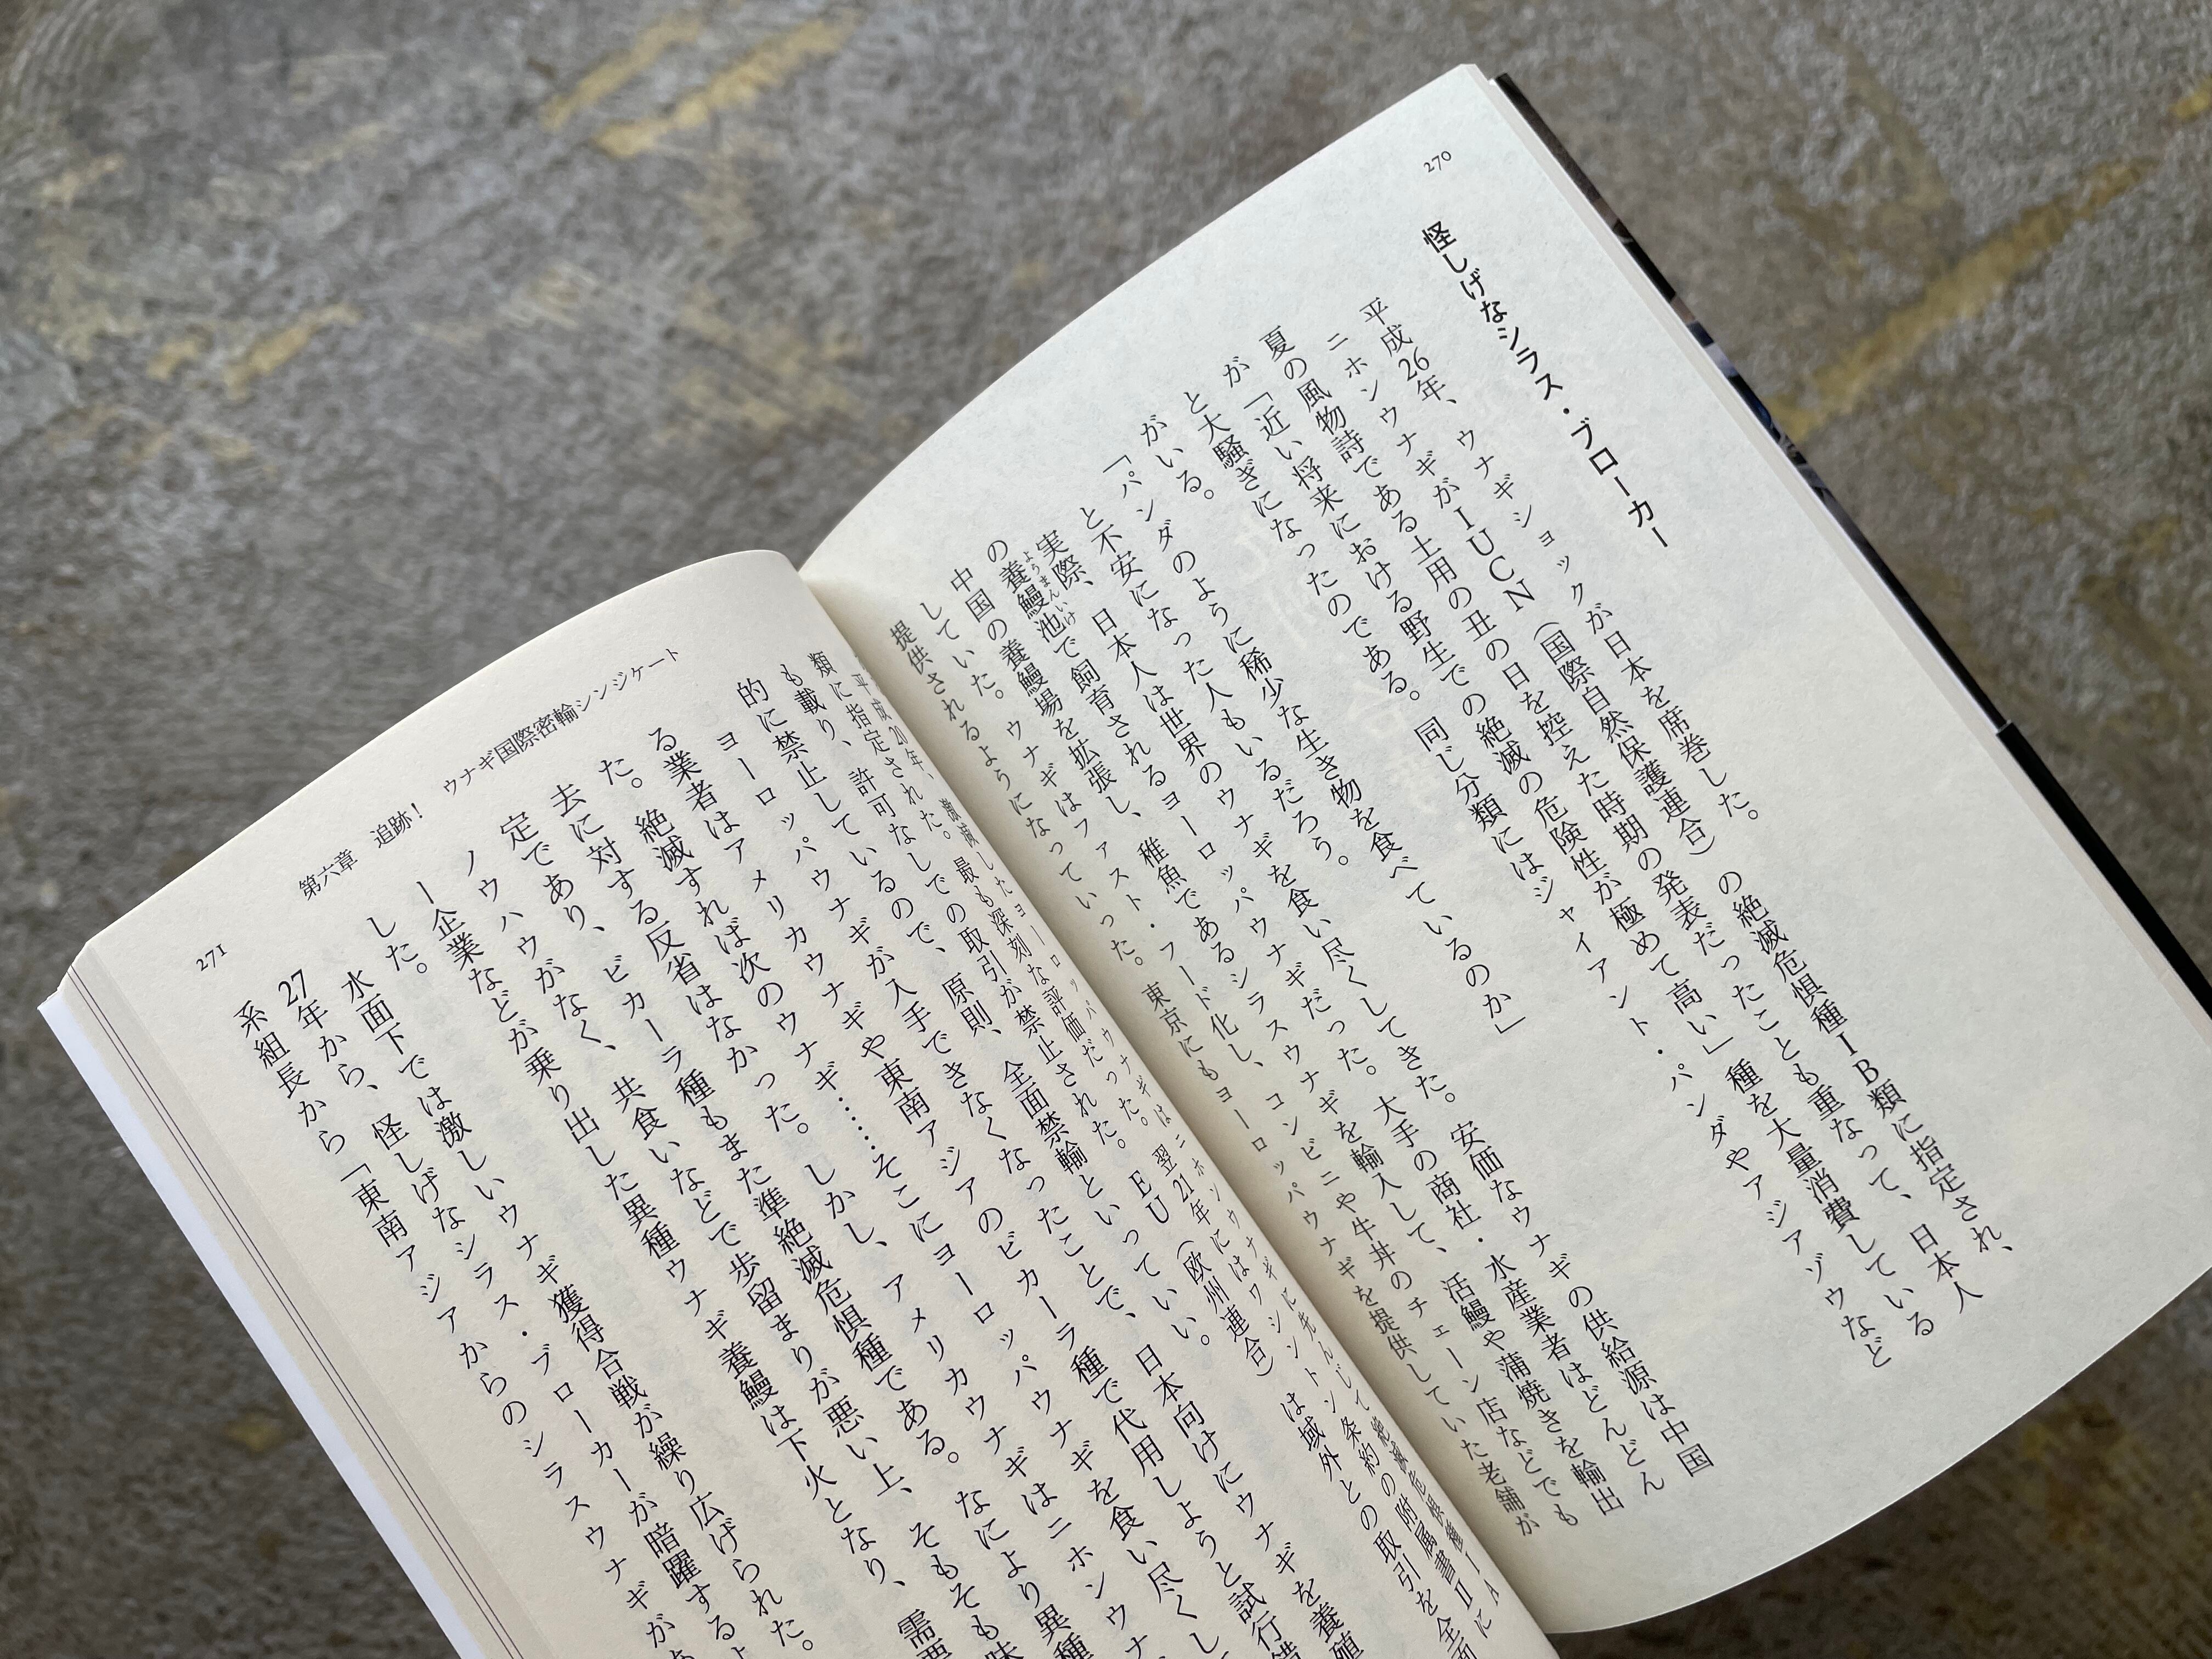 270
怪しげなシラス・ブローカー
平成26年、ウナギショックが日本を席巻した。
ニホンウナギがIUCN（国際自然保護連合）の絶滅危惧種IB類に指定され、
夏の風物詩である土用の丑の日を控えた時期の発表だったことも重なって、日本人
が「近い将来における野生での絶滅の危険性が極めて高い」種を大量消費している
と大騒ぎになったのである。同じ分類にはジャイアント・パンダやアジアゾウなど
がいる。
「パンダのように稀少な生き物を食べているのか」
と不安になった人もいるだろう。
実際、日本人は世界のウナギを食い尽くしてきた。安価なウナギの供給源は中国
の養鰻池で飼育されるヨーロッパウナギだった。大手の商社・水産業者はどんどん
ようまんいけ
中国の養鰻場を拡張し、稚魚であるシラスウナギを輸入して、活鰻や蒲焼きを輸出
していた。ウナギはファスト・フード化し、コンビニや牛丼のチェーン店などでも
提供されるようになっていった。東京にもヨーロッパウナギを提供していた老舗が
平成20年、激減したヨーロッパウナギはニホンウナギに先んじて絶滅危惧種IA
類に指定された。最も深刻な評価だった。翌21年にはワシントン条約の附属書Ⅱに
も載り、許可なしでの取引が禁止された。EU（欧州連合）は域外との取引を全面
的に禁止しているので、原則、全面禁輸といっていい。日本向けにウナギを養殖
ヨーロッパウナギが入手できなくなったことで、ビカーラ種で代用しようと試行錯
る業者はアメリカウナギや東南アジアのビカーラ種で代用しようと試行錯
た。絶滅すれば次のウナギ……そこにヨーロッパウナギを食い尽くし
去に対する反省はなかった。しかし、アメリカウナギはニホンウナ
定であり、ビカーラ種もまた準絶滅危惧種である。なにより異種
ノウハウがなく、共食いなどで歩留まりが悪い上、そもそも味
ー企業などが乗り出した異種ウナギ養鰻は下火となり、需要
した。
水面下では激しいウナギ獲得合戦が繰り広げられた。
27年から、怪しげなシラス・ブローカーが暗躍するよ
系組長から「東南アジアからのシラスウナギがあ
第六章　追跡！　ウナギ国際密輸シンジケート
271